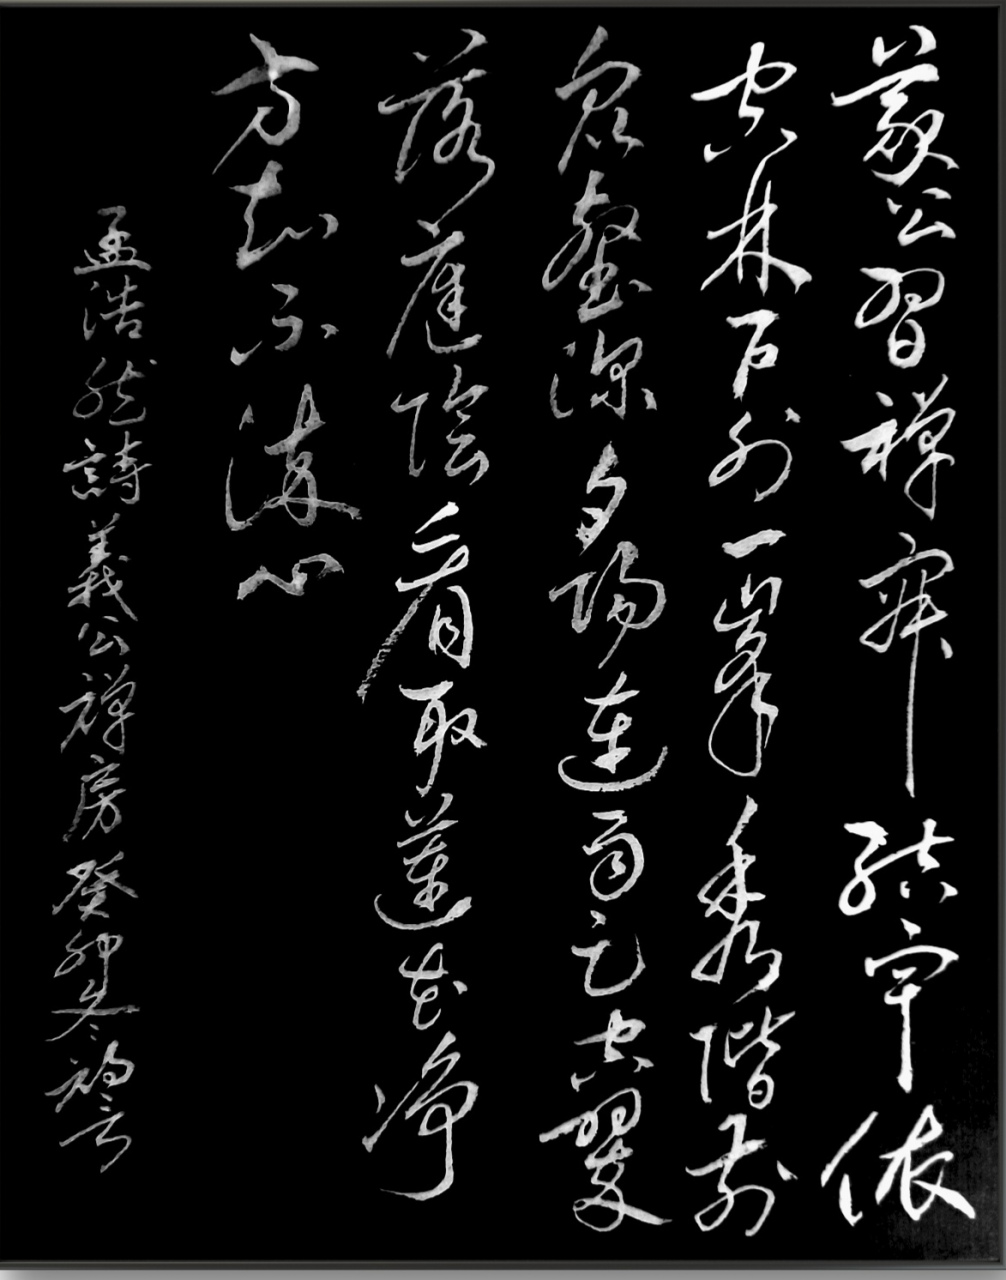 義公習禪寂結宇依
空林戶外一峯秀階前
眾壑深夕陽連雨足空翠
落庭陰看取蓮花淨
方知不染心
孟浩然詩義公禪房癸卯冬